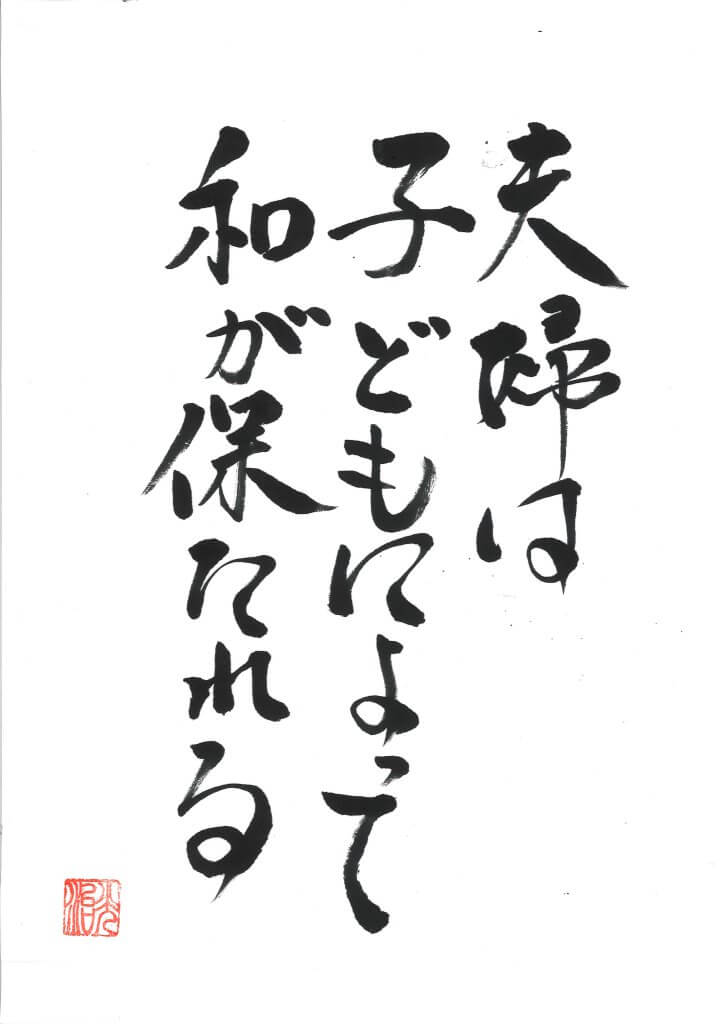 夫婦は
子どもによって
和が保たれる